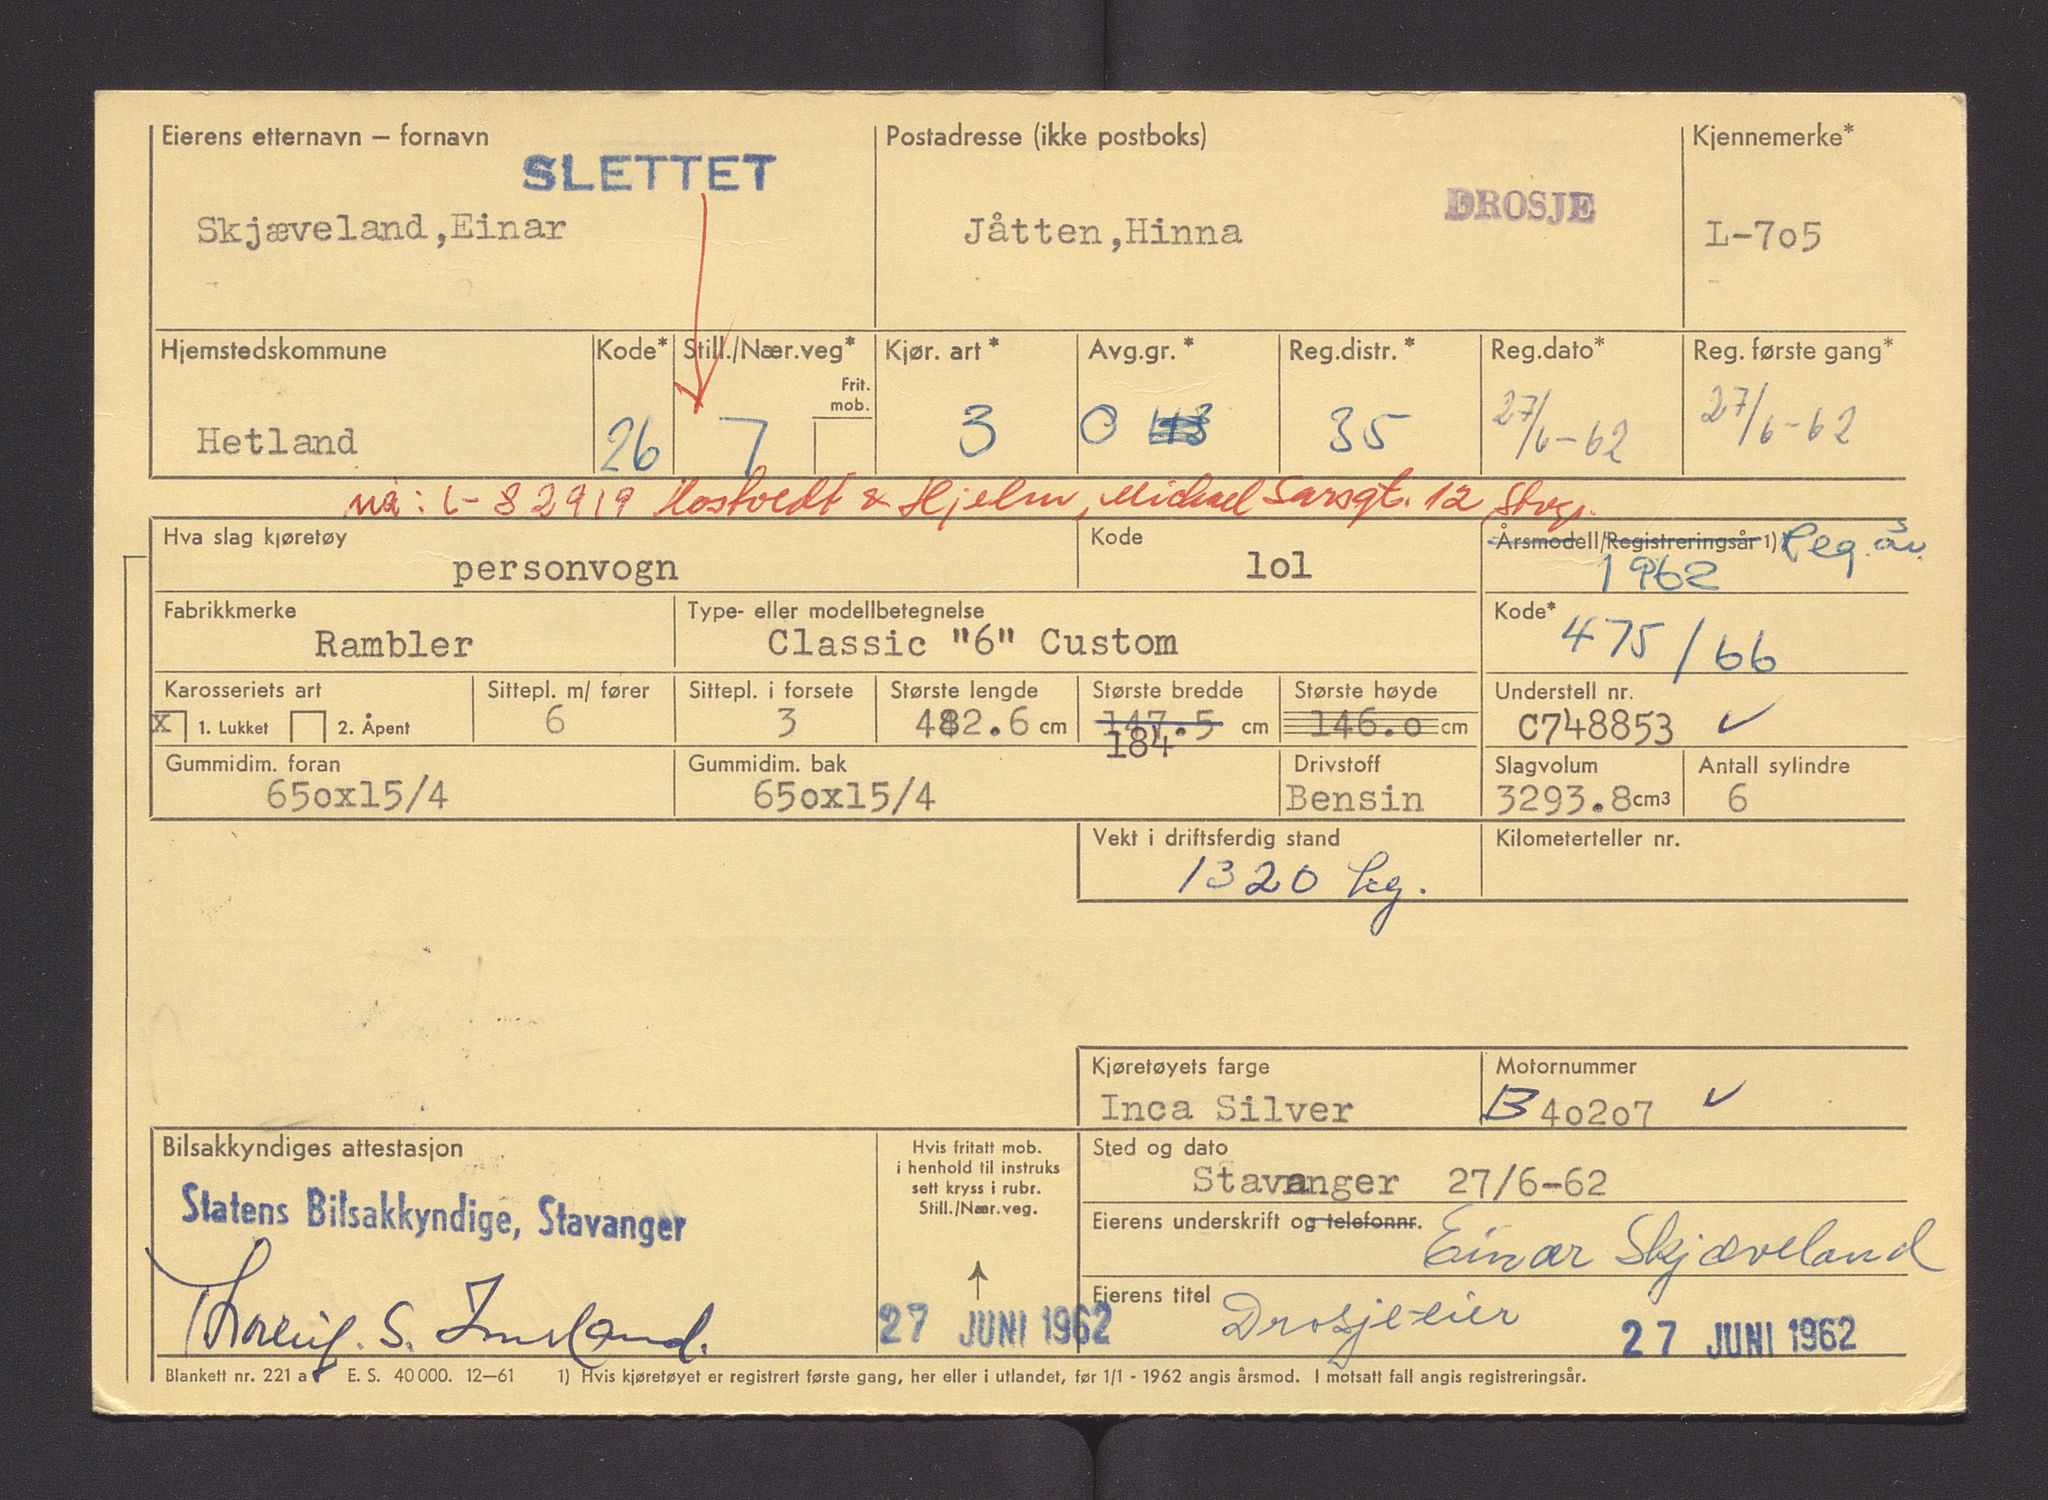 Eierens etternavn — fornavn
SLETTET
Skjæveland,Einar
Postadresse (ikke postboks)
DROSJE
Jåtten,Hinna
Kjennemerke*
L-7o5
Hjemstedskommune
Hetland
Kode*
26
Still./Nær.veg*
Frit. mob.
7
Kjør. art *
3
Avg.gr. *
0
Reg.distr. *
35
Reg.dato*
27/6-62
Reg. første gang*
27/6-62
nå: L-82919 Hostvedt & Hjelm, Michael Sarsgt. 12 Stvgr.
Hva slag kjøretøy
personvogn
Kode
lol
Årsmodell/Registreringsår 1) Reg. år.
1962
Fabrikkmerke
Rambler
Type- eller modellbetegnelse
Classic "6" Custom
Kode*
475/66
Karosseriets art
x 1. Lukket 2. Åpent
Sittepl. m/ fører
6
Sittepl. i forsete
3
Største lengde
482.6 cm
Største bredde
147.5 cm
184
Største høyde
146.o cm
Understell nr.
C748853 ✓
Gummidim. foran
65ox15/4
Gummidim. bak
65ox15/4
Drivstoff
Bensin
Slagvolum
3293.8cm3
Antall sylindre
6
Vekt i driftsferdig stand
1320 kg.
Kilometerteller nr.
Kjøretøyets farge
Inca Silver
Motornummer
B 4o2o7 ✓
Bilsakkyndiges attestasjon
Statens Bilsakkyndige, Stavanger
Hvis fritatt mob.
i henhold til instruks
sett kryss i rubr.
Still./Nær.veg.
27 JUNI 1962
Sted og dato
Stavanger 27/6-62
Eierens underskrift og telefonnr.
Einar Skjæveland
Eierens titel
Drosjeeier
27 JUNI 1962
Blankett nr. 221 a E. S. 40 000. 12—61 1) Hvis kjøretøyet er registrert første gang, her eller i utlandet, før 1/1 - 1962 angis årsmod. I motsatt fall angis registreringsår.